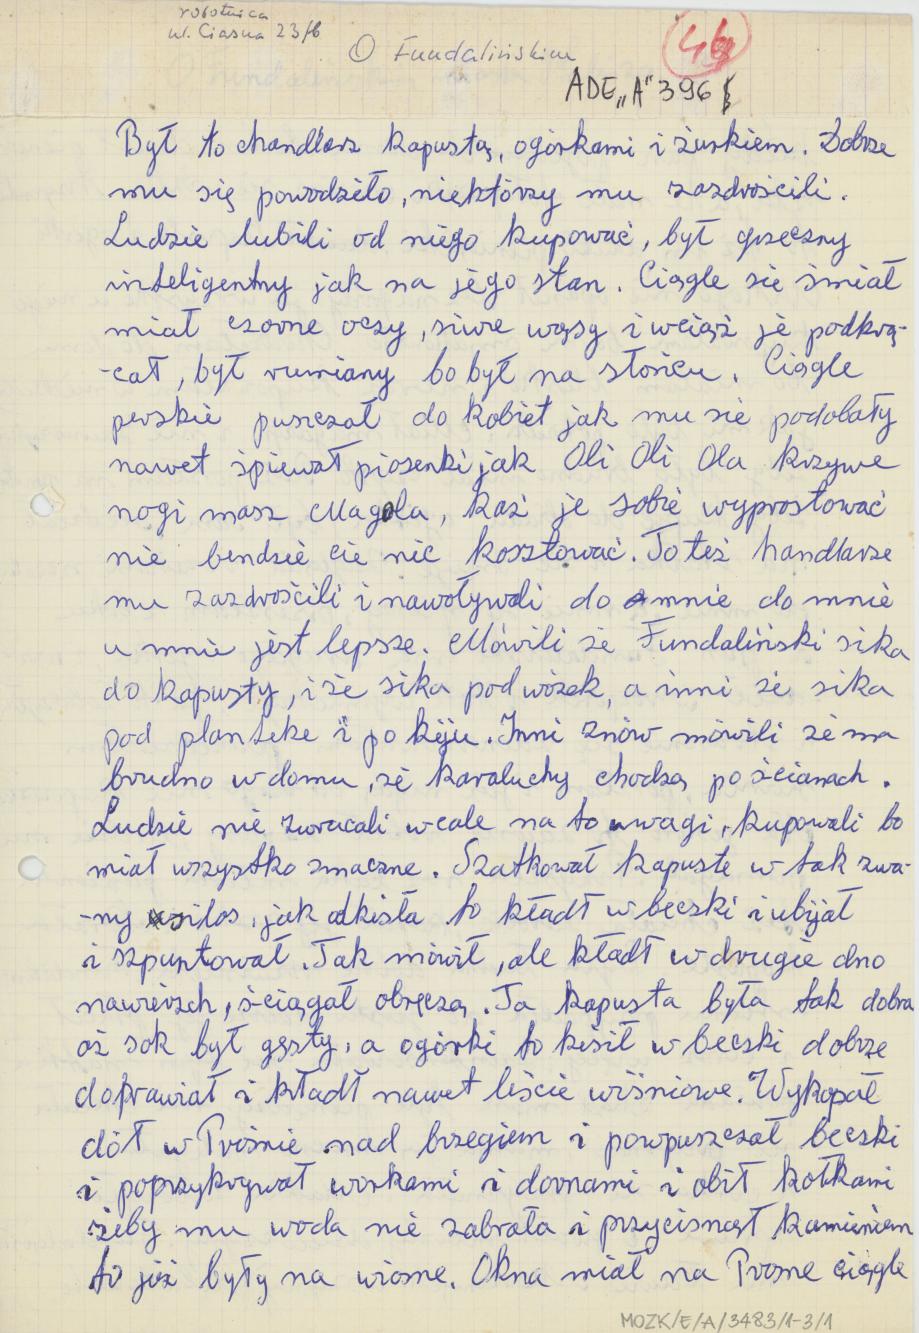 robotnica
ul. Ciasna 23/6
O Fundalińskim
46
ADE „A" 396
Był to chandlarz kapustą, ogórkami i żurkiem. Dobrze
mu się powodziło, niektórzy mu zazdrościli.
Ludzie lubili od niego kupować, był grzeczny
inteligentny jak na jego stan. Ciągle sie śmiał
miał czarne oczy, siwe wąsy i wciąż je podkrą-
-cał, był rumiany bo był na słońcu. Ciągle
perskie puszczał do kobiet jak mu sie podobały
nawet śpiewał piosenki jak Oli Oli Ola krzywe
nogi masz Magola, każ je sobie wyprostować
nie bendzie cie nic kosztować. To też handlarze
mu zazdrościli i nawoływali do mnie do mnie
u mnie jest lepsze. Mówili że Fundaliński sika
do kapusty, i że sika pod wózek, a inni że sika
pod planteke i po kiju. Inni znów mówili że ma
brudno w domu, że karaluchy chodzą po ścianach.
Ludzie nie zwracali wcale na to uwagi, kupowali bo
miał wszystko smaczne. Szatkował kapuste w tak zwa-
-ny silos, jak odkisła to kładł w beczki i ubijał
i szpuntował. Tak mówił, ale kładł w drugie dno
nawierzch, ściągał obręczą. Ta kapusta była tak dobra
aż sok był gęsty, a ogórki to kisił w beczki dobrze
doprawiał i kładł nawet liście wiśniowe. Wykopał
dół w Prośnie nad brzegiem i powpuszczał beczki
i poprzykrywał workami i darnami i obił kołkami
żeby mu woda nie zabrała i przycisnął kamieniem
to już były na wiosne. Okna miał na Prosne ciągle
MOZK/E/A/3483/1-3/1